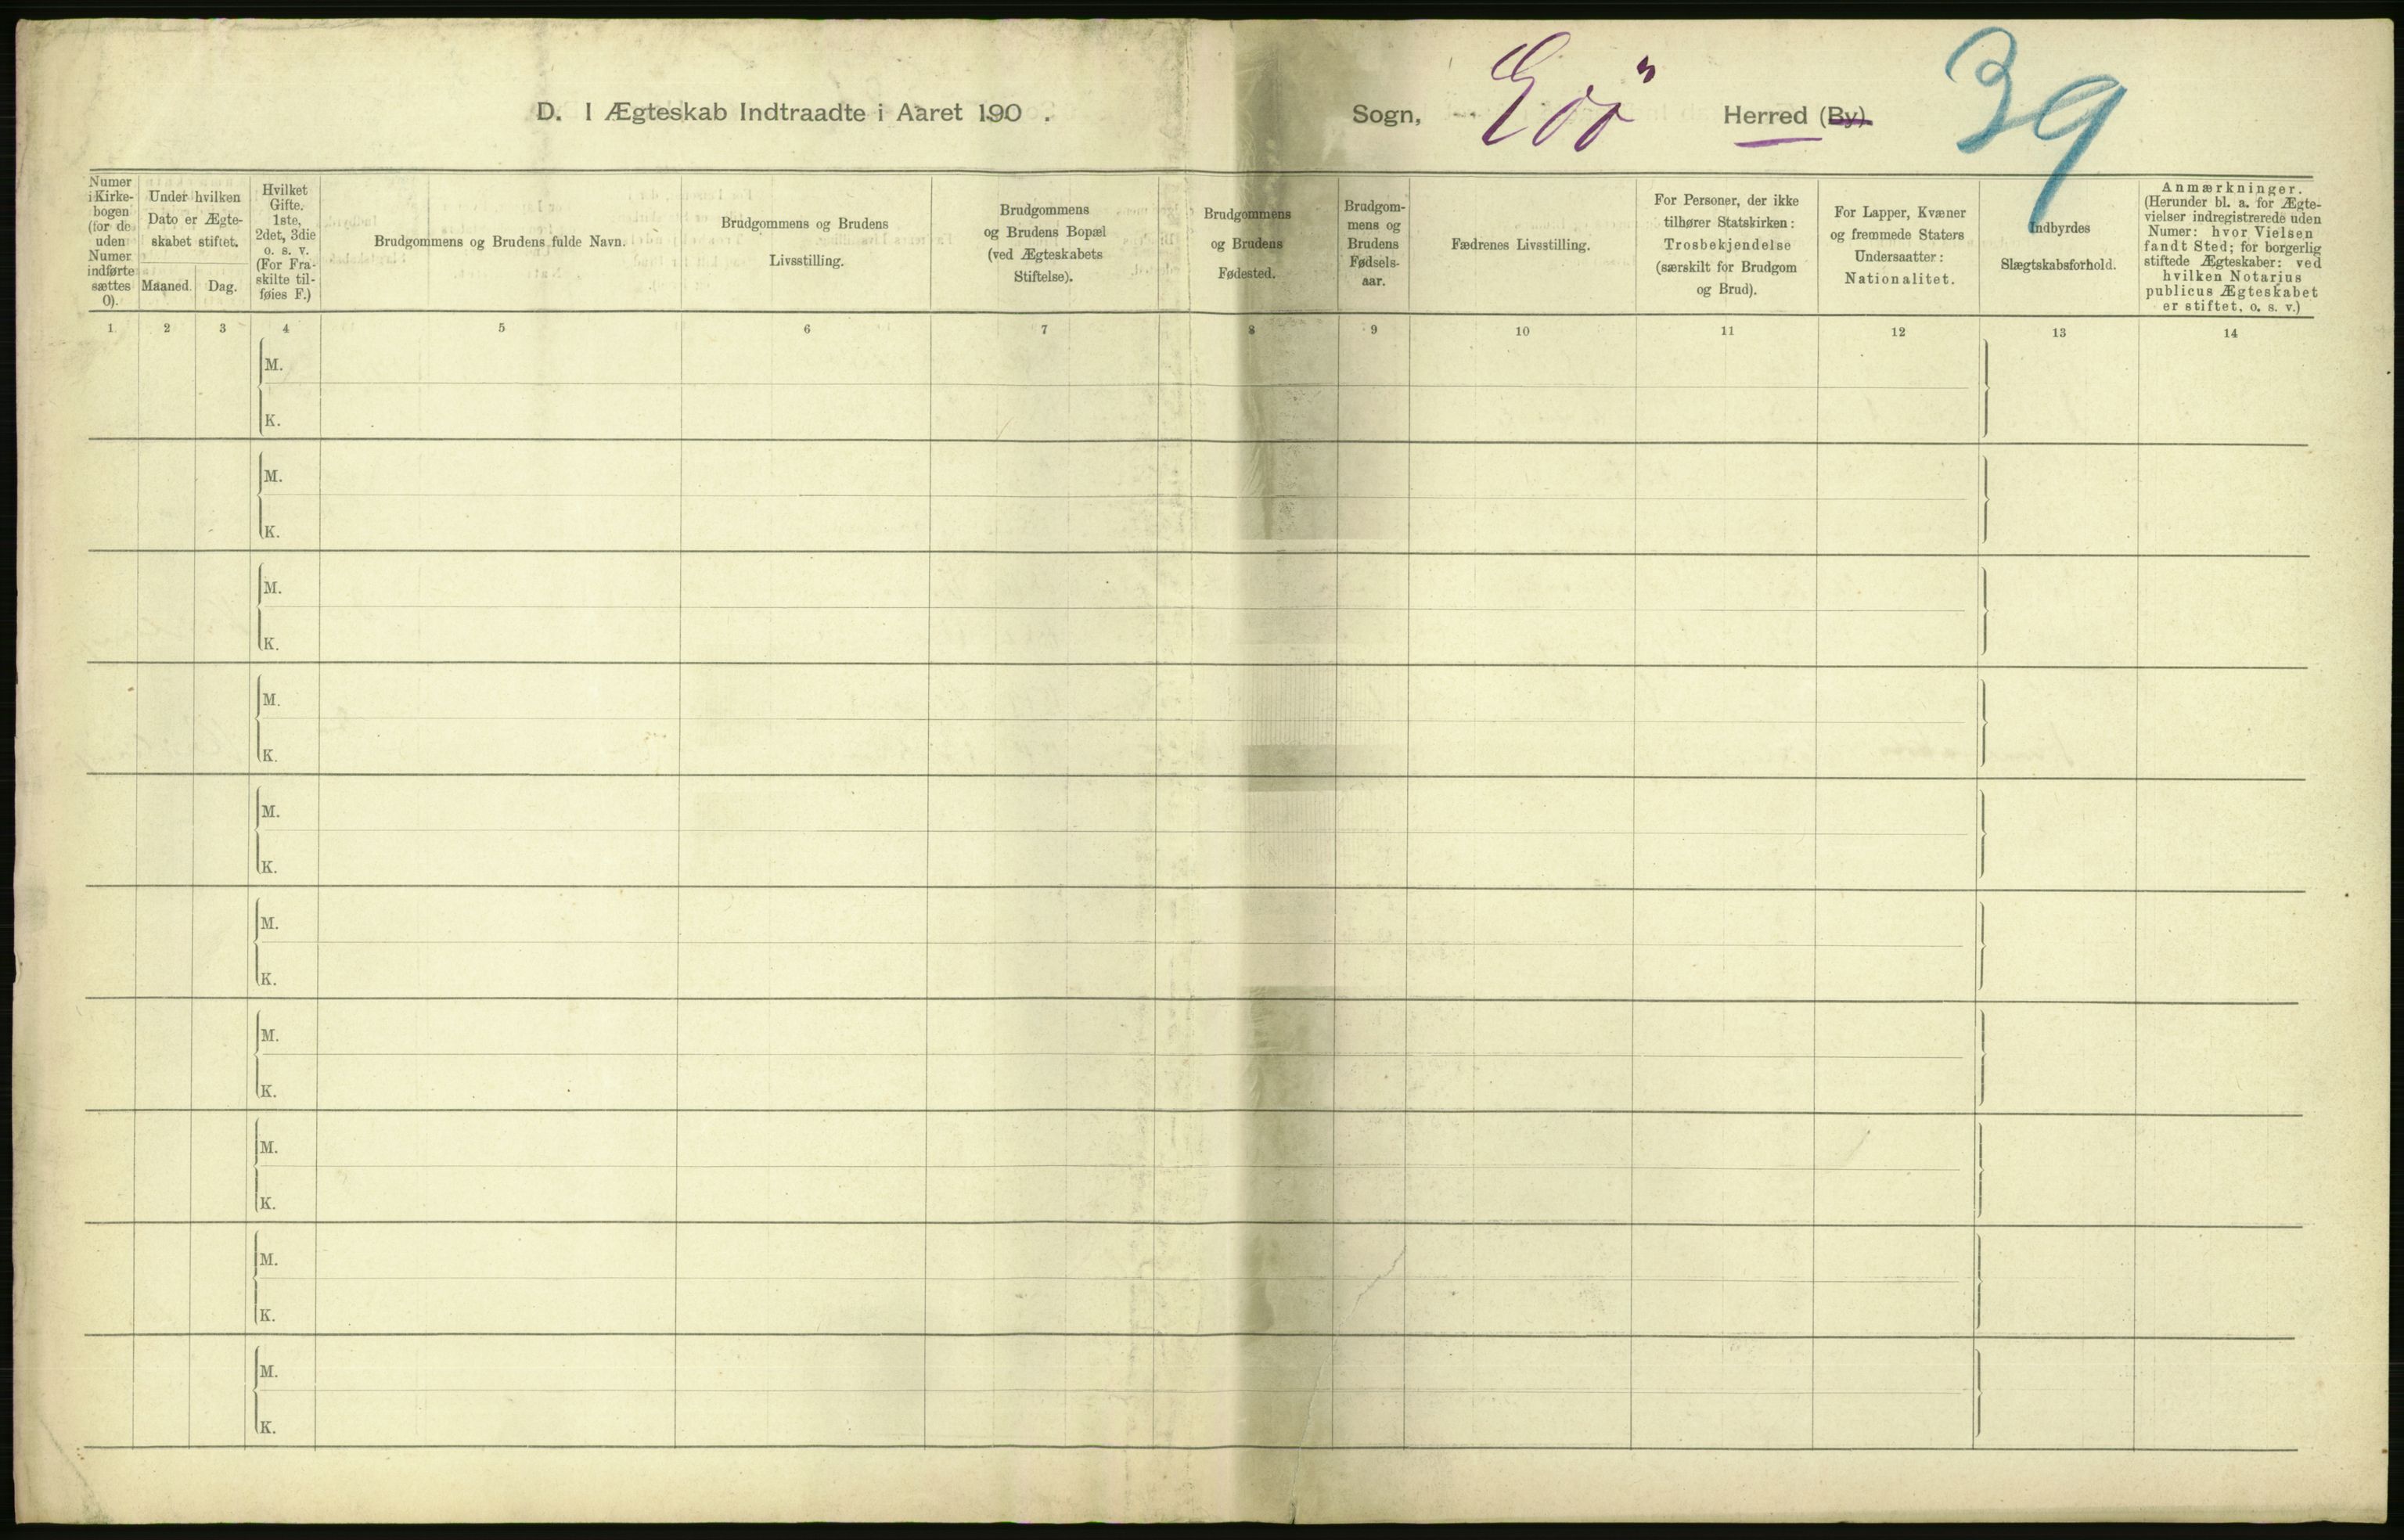 D. I Ægteskab Indtraadte i Aaret 190 . Sogn, Herred (By). 39
Numer
i Kirke-
bogen
(for de
uden
Numer
indførte
sættes
0).
Under hvilken
Dato er Ægte-
skabet stiftet.
Maaned.
Dag.
Hvilket
Gifte.
1ste,
2det, 3die
o. s. v.
(For Fra-
skilte til-
føies F.)
Brudgommens og Brudens fulde Navn.
Brudgommens og Brudens
Livsstilling.
Brudgommens
og Brudens Bopæl
(ved Ægteskabets
Stiftelse).
Brudgommens
og Brudens
Fødested.
Brudgom-
mens og
Brudens
Fødsels-
aar.
Fædrenes Livsstilling.
For Personer, der ikke
tilhører Statskirken:
Trosbekjendelse
(særskilt for Brudgom
og Brud).
For Lapper, Kvæner
og fremmede Staters
Undersaatter:
Nationalitet.
Indbyrdes
Slægtskabsforhold.
Anmærkninger.
(Herunder bl. a. for Ægte-
vielser indregistrerede uden
Numer: hvor Vielsen
fandt Sted; for borgerlig
stiftede Ægteskaber: ved
hvilken Notarius
publicus Ægteskabet
er stiftet, o. s. v.)
1 2 3 4 5 6 7 8 9 10 11 12 13 14
M.
K.
M.
K.
M.
K.
M.
K.
M.
K.
M.
K.
M.
K.
M.
K.
M.
K.
M.
K.